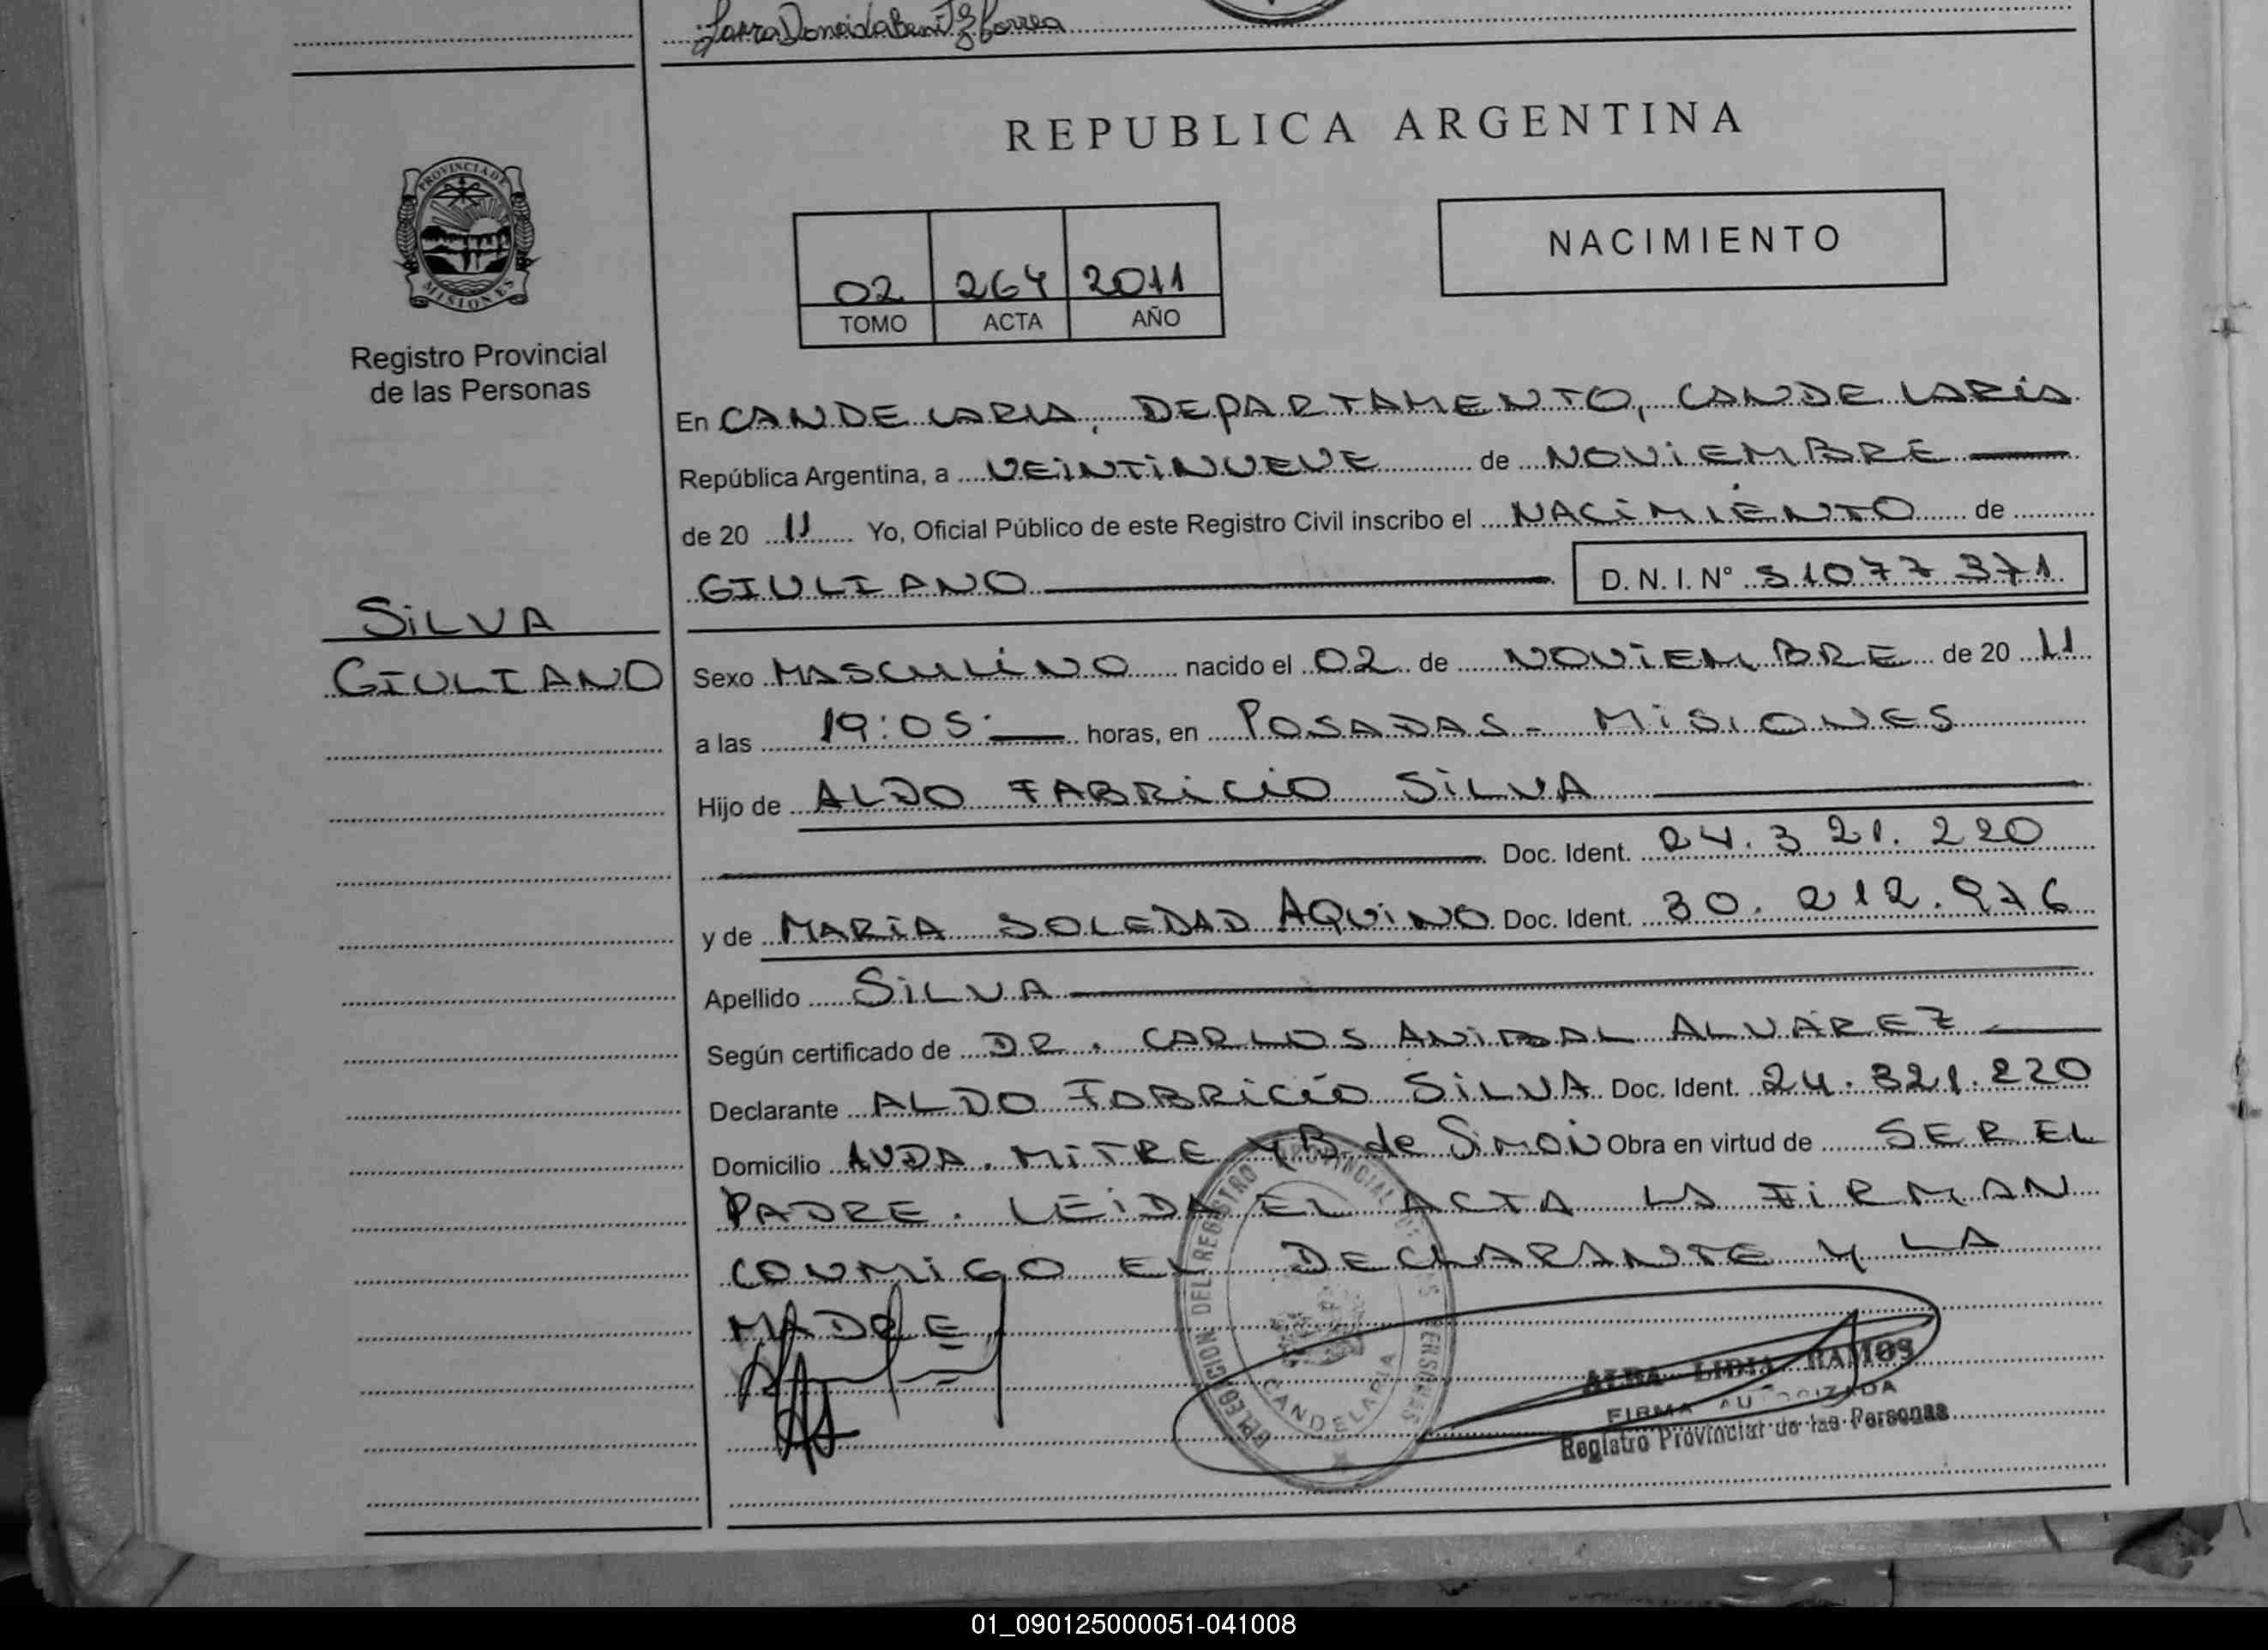 REPUBLICA ARGENTINA
PROVINCIA DE
MISIONES
Registro Provincial
de las Personas
NACIMIENTO
02 264 2011
TOMO ACTA AÑO
En CANDELARIA, DEPARTAMENTO, CANDELARIA
República Argentina, a VEINTINUEVE de NOVIEMBRE
de 20 11 Yo, Oficial Público de este Registro Civil inscribo el NACIMIENTO de
GIULIANO D. N. I. N° 51077371
SILVA
GIULIANO
Sexo MASCULINO nacido el 02 de NOVIEMBRE de 20 11
a las 19:05 horas, en POSADAS - MISIONES
Hijo de ALDO FABRICIO SILVA
Doc. Ident. 24.321.220
y de MARIA SOLEDAD AQUINO Doc. Ident. 30.212.976
Apellido SILVA
Según certificado de DR. CARLOS ANIBAL ALVAREZ
Declarante ALDO FABRICIO SILVA Doc. Ident. 24.321.220
Domicilio AVDA. MITRE Y B de SIMON Obra en virtud de SER EL
PADRE. LEIDA EL ACTA LA FIRMAN
CONMIGO EL DECLARANTE Y LA
MADRE
DELEGACION DEL REGISTRO PROVINCIAL DE LAS PERSONAS
CANDELARIA
ALBA LIDIA RAMOS
FIRMA AUTORIZADA
Registro Provincial de las Personas
01_090125000051-041008